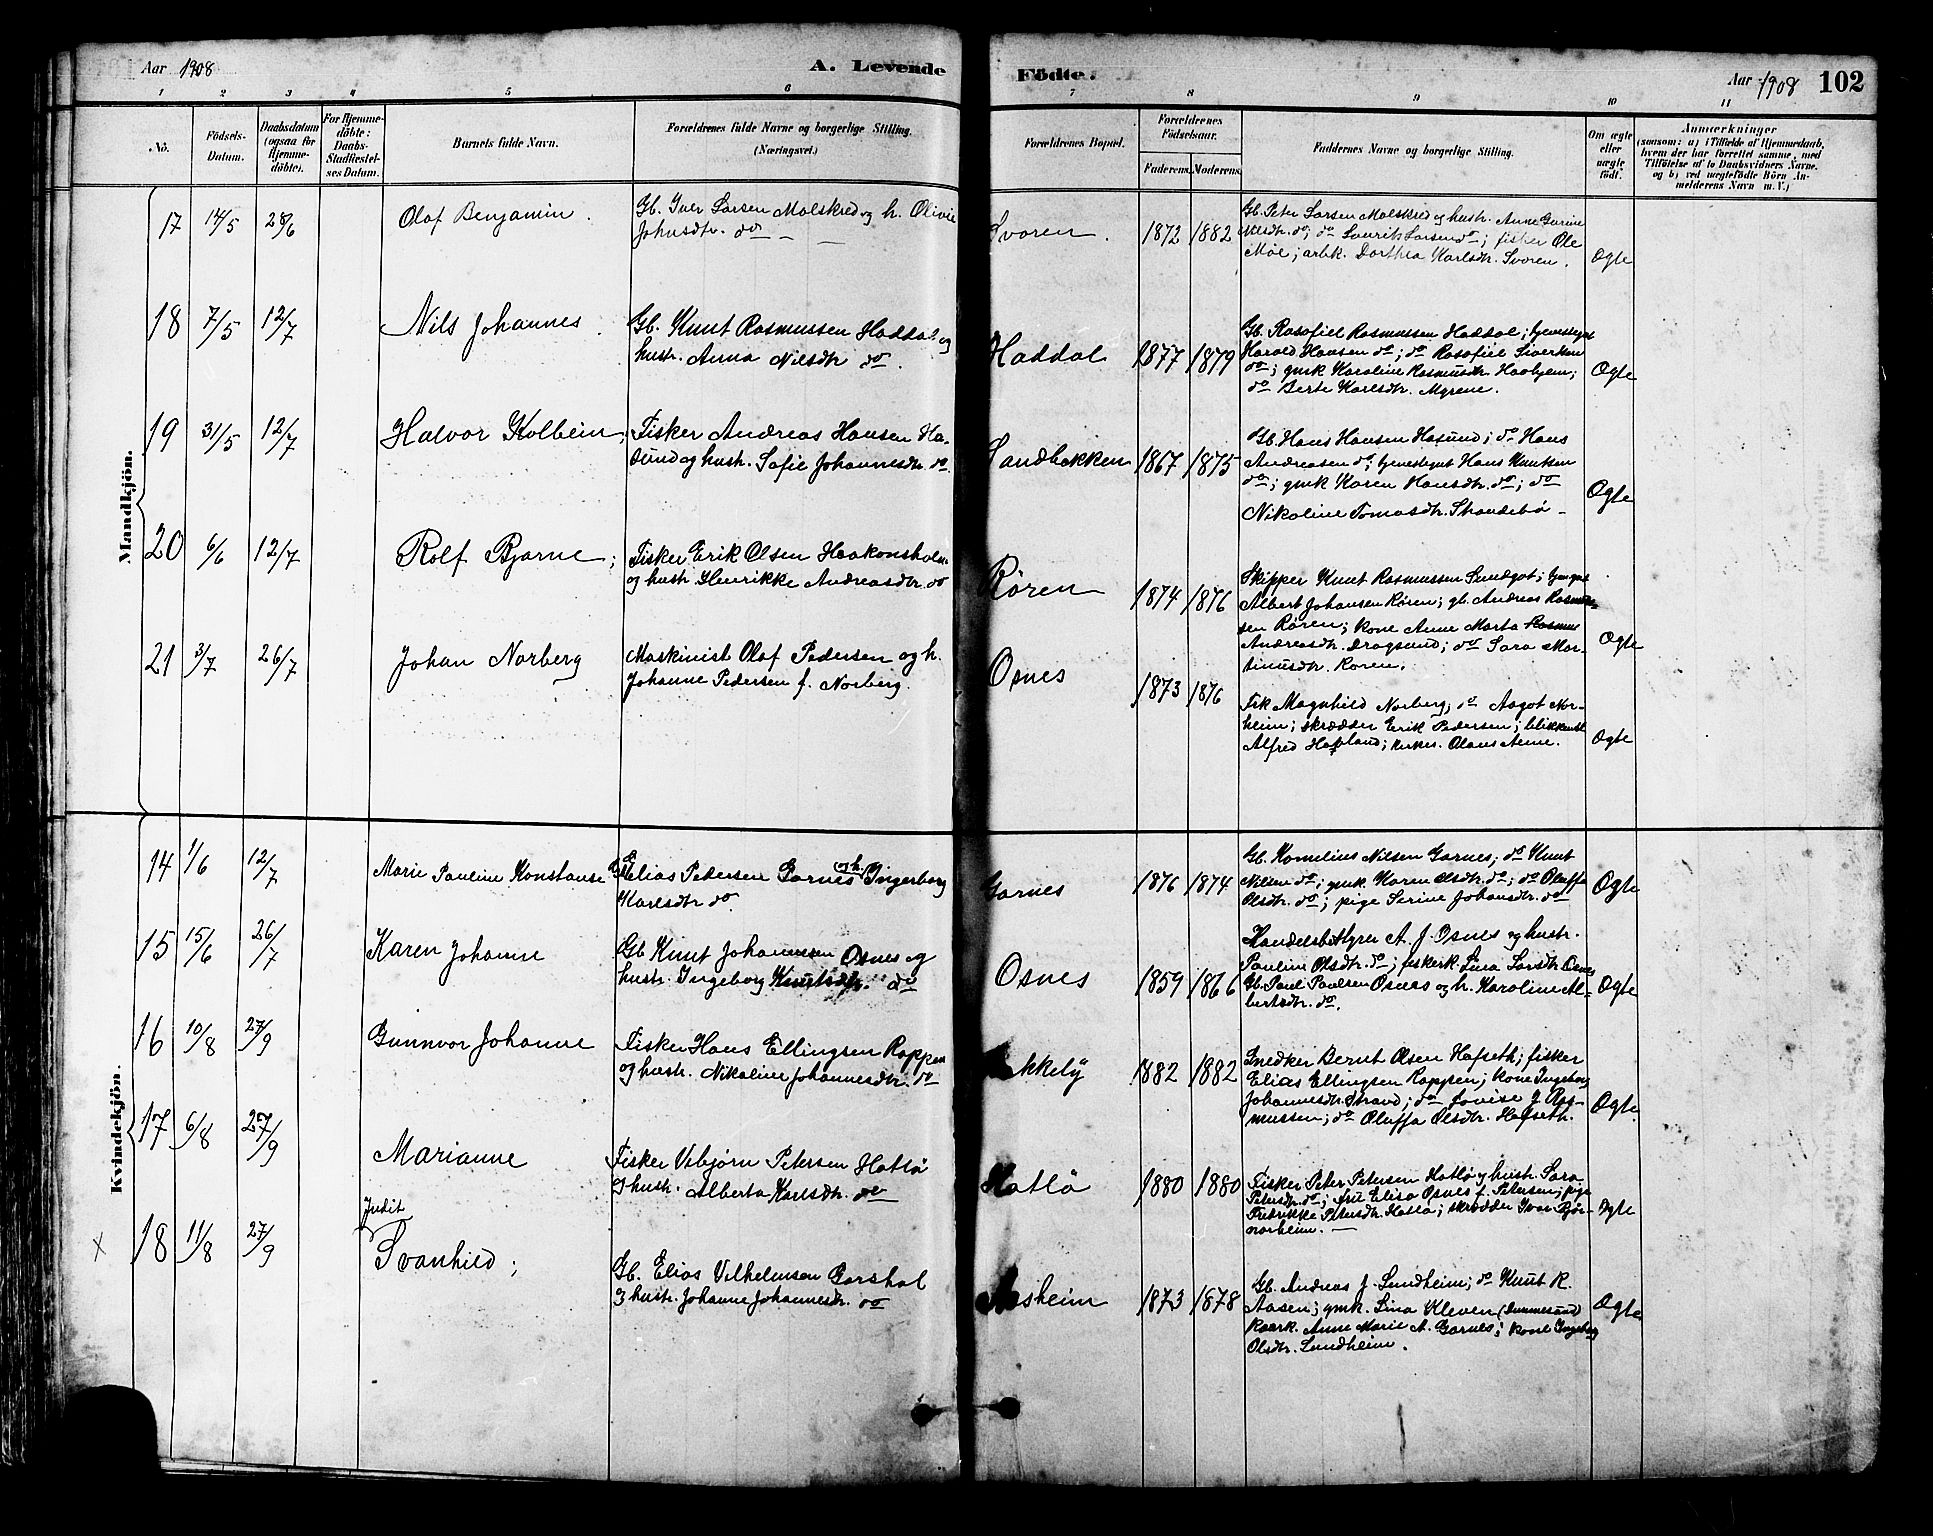 Aar 1908
A. Levende
Födte.
Aar 1908
102
1 2 3 4 5 6 7 8 9 10 11
No.
Födsels-Datum.
Daabsdatum (ogsaa for Hjemmedöbte).
For Hjemmedöbte: Daabs-Stadfæstelses Datum.
Barnets fulde Navn.
Forældrenes fulde Navne og borgerlige Stilling.
(Næringsvei.)
Forældrenes Bopæl.
Forældrenes Födselsaar.
Faderens. Moderens.
Faddernes Navne og borgerlige Stilling.
Om ægte eller uægte födt.
Anmærkninger
(saasom: a) i Tilfælde af Hjemmedaab,
hvem der har forrettet samme, med
Tilföielse af to Daabsvidners Navne,
og b) ved uægtefödte Börn Anmelderens Navn m. V.)
Mandkjön.
17 14/5 28/6 Olaf Benjamin.
Gb. Iver Larsen Molskred og h. Olivie
Johnsdtr. do
Svoren. 1872 1882
Gb. Peter Larsen Molskred og hustr. Anne Gurine
Nilsdtr. do; do Laurits Larsen do; fisker Ole
Moe; arbk. Dorthea Karlsdtr. Svoren.
Ogte
18 7/5 12/7 Nils Johannes.
Gb. Knut Rasmussen Haddal og
hustr. Anna Nilsdtr do.
Haddal 1877 1879
Gb. Rasofiel Rasmussen Haddal; tjenestegut
Harald Hansen do; do Rasofiel Sivertsen
do; gmk Karoline Rasmusdtr. Haabjem;
do Berte Karlsdtr. Myrene.
Ogte
19 31/5 12/7 Halvor Kolbein;
Fisker Andreas Hansen Ha-
sund og hustr. Sofie Johannesdtr. do
Sandbakken 1867 1875
Gb. Hans Hansen Hasund; do Hans
Andreasen do; tjenestegut Hans Knutsen
do; gmk Karen Hansdtr. do; do
Nikoline Tomasdtr. Strandebø
Ogte
20 6/6 12/7 Rolf Bjarne;
Fisker Erik Olsen Haakonsholm
og hustr Henrikke Andreasdtr. do
Røren 1874 1876
Skipper Knut Rasmussen Sundgot;
Albert Johansen Røren; gb. Andreas Rasmus-
sen Røren; kone Anne Marta Rasmus
Andreasdtr. Dragsund; do Sara Mar-
tinusdtr. Røren.
Ogte
21 3/7 26/7 Johan Norberg
Maskinist Olaf Pedersen og h.
Johanne Pedersen f. Norberg.
Osnes 1873 1876
Frk Magnhild Norberg; do Aagot Nor-
heim; skrædder Erik Pedersen; blikkensl.
Alfred Hapland; Olaus Aenne.
Ogte
Kvindekjön.
14 1/6 12/7 Marie Pauline Konstanse
Gb Elias Pedersen Garnes og h. Ingeborg
Karlsdtr do.
Garnes 1876 1874
Gb. Kornelius Nilsen Garnes; do Knut
Nilsen do; gmk Karen Olsdtr. do; do Oluffa
Olsdtr. do; pige Serine Johansdtr. do
Ogte
15 15/6 26/7 Karen Johanne
Gb Knut Johannesen Osnes og
hustr. Ingeborg Knutsdtr. do
Osnes 1859 1866
Handelsbestyrer A. J. Osnes og hustr.
Pauline Olsdtr. do; fiskerk. Lina Larsdtr. Osnes
Gb. Paul Paulsen Osnes og h. Karoline Al-
bertsdtr. do.
Ogte
16 10/8 27/9 Gunnvor Johanne
Fisker Hans Ellingsen Rappen
og hustr. Nikoline Johannesdtr. do
kkely 1882 1882
Snedker Bernt Olsen Hafseth; fisker
Elias Ellingsen Rappen; kone Ingeborg
Johannesdtr. Strand; do Lovise J Ras-
mussen; do Oluffa Olsdtr. Hafseth.
Ogte
17 6/8 27/9 Marianne
Fisker Vebjørn Petersen Hatlø
og hustr. Alberta Karlsdtr. do
Hatlø 1880 1880
Fisker Peter Petersen Hatlø og hustr. Sara
Petersdtr. do; fru Elisa Osnes f. Petersen; pige
Fredrikke Petersdtr. Hatlø; skrædder Ivar Bjør-
norheim.
Ogte
X 18 11/8 27/9 Judit
Svanhild;
Gb. Elias Vilhelmsen Garshol
og hustr. Johanne Johannesdtr. do
Aasheim 1873 1878
Gb. Andreas J. Sundheim; do Knut R.
Aasen; gmk. Lina Kleven (Dimmesund)
Kaark. Anne Marie A. Garnes; kone Ingeborg
Olsdtr. Sundheim.
Ogte